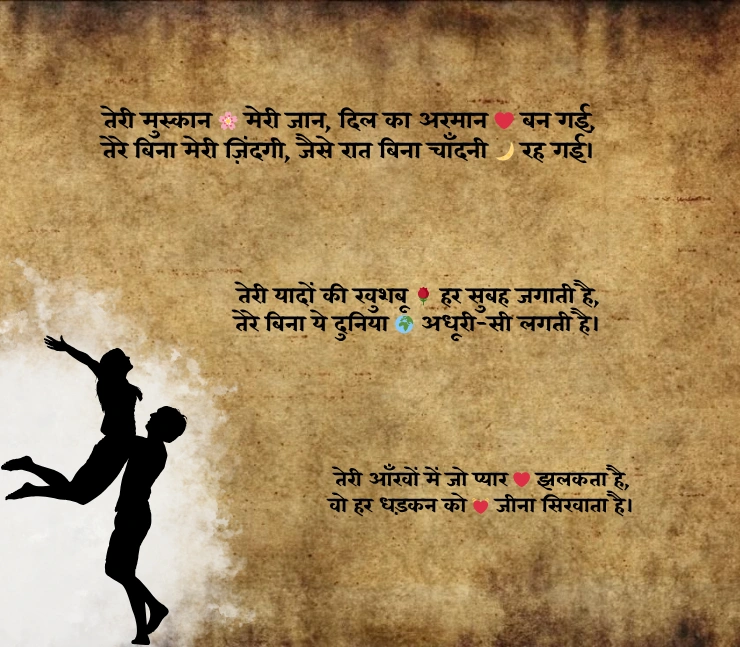 तेरी मुस्कान 🌸 मेरी जान, दिल का अरमान ❤️ बन गई,
तेरे बिना मेरी ज़िंदगी, जैसे रात बिना चाँदनी 🌙 रह गई।
तेरी यादों की खुशबू 🌹 हर सुबह जगाती है,
तेरे बिना ये दुनिया 🌍 अधूरी-सी लगती है।
तेरी आँखों में जो प्यार ❤️ झलकता है,
वो हर धड़कन को ❤️ जीना सिखाता है।